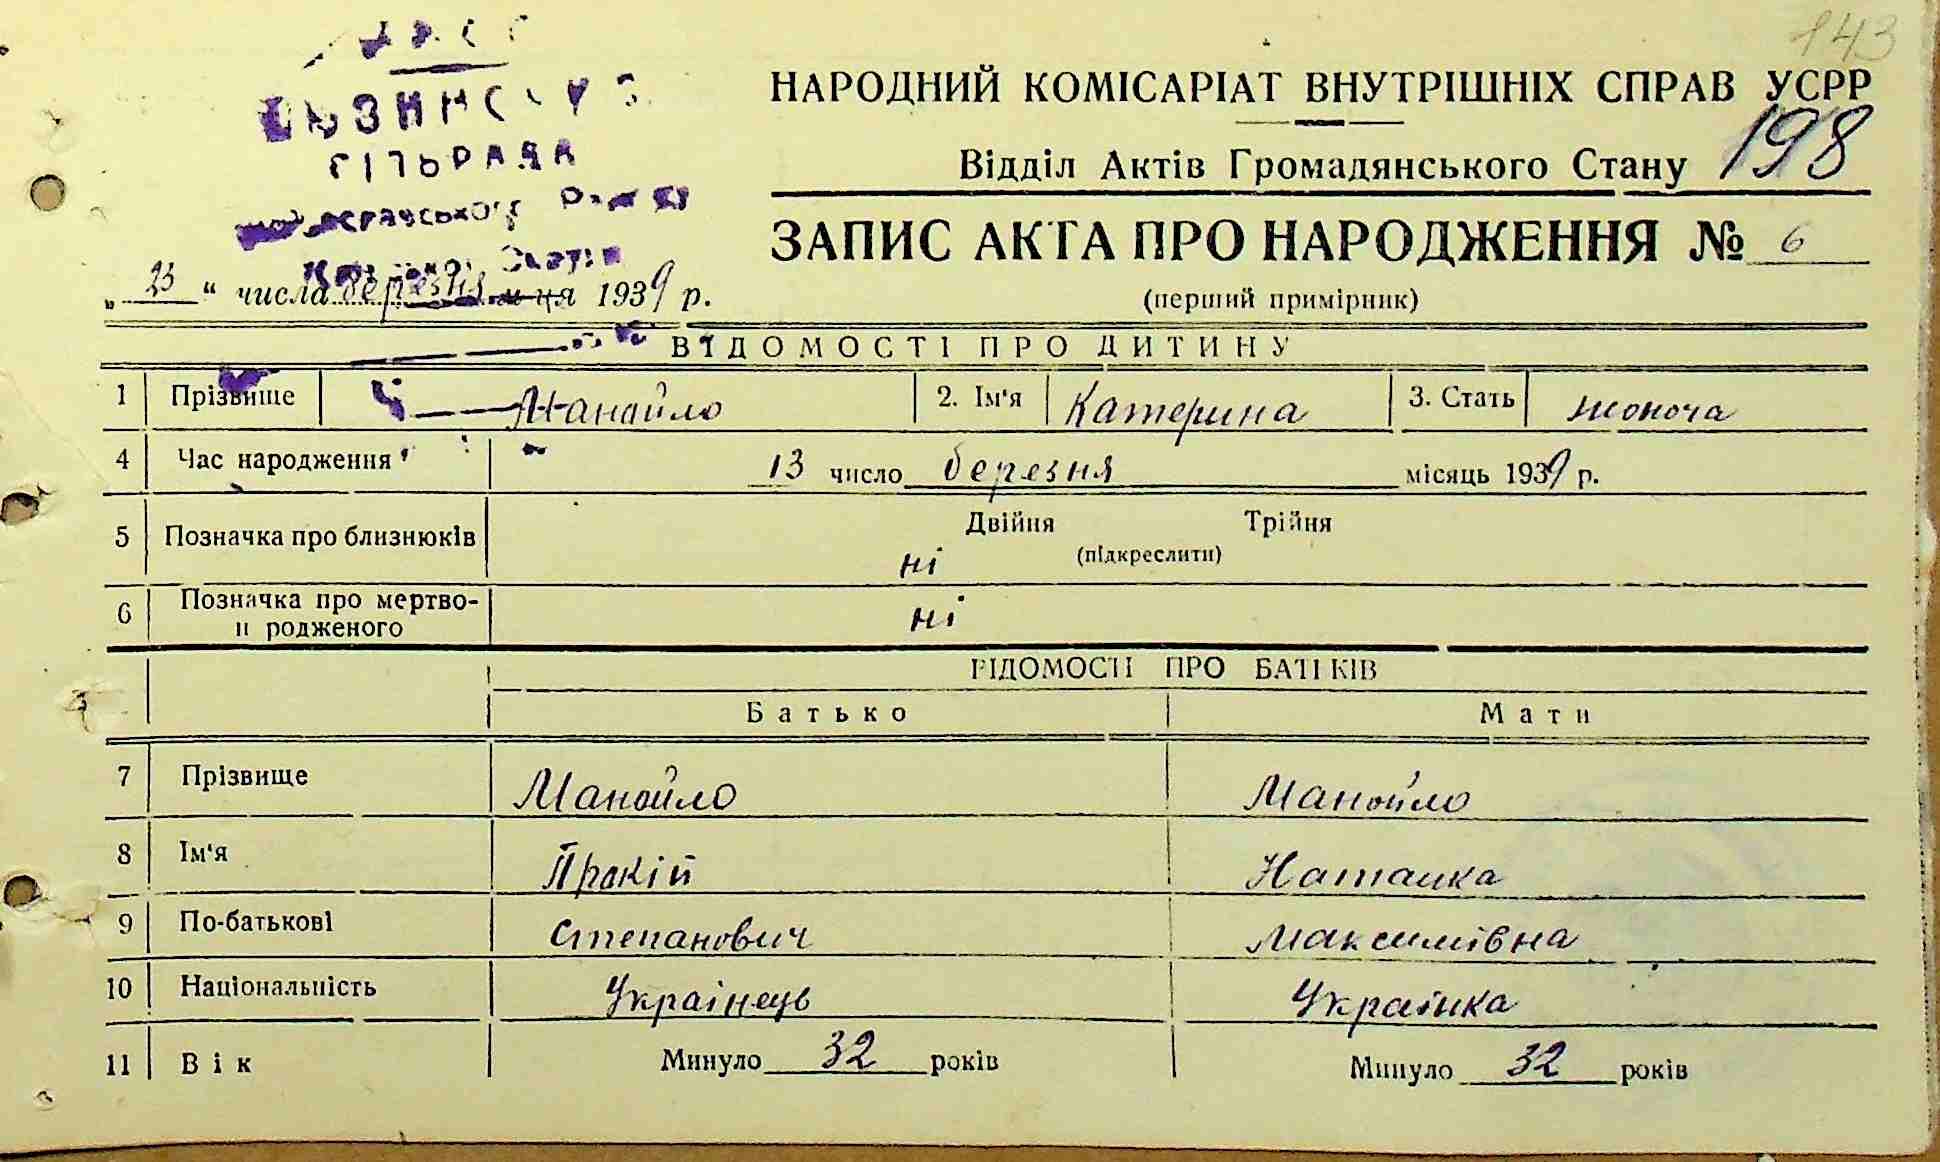 143
НАРОДНИЙ КОМІСАРІАТ ВНУТРІШНІХ СПРАВ УСРР
Відділ Актів Громадянського Стану 198
СІЛЬРАДА
ЗАПИС АКТА ПРО НАРОДЖЕННЯ № 6
„23“ числа березня м-ця 1939 р.
(перший примірник)
ВІДОМОСТІ ПРО ДИТИНУ
1 Прізвище Манойло 2. Ім'я Катерина 3. Стать жоноча
4 Час народження 13 число березня місяць 1939 р.
5 Позначка про близнюків ні Двійня Трійня
(підкреслити)
6 Позначка про мертво-
н родженого ні
ВІДОМОСТІ ПРО БАТЬКІВ
Батько Мати
7 Прізвище Манойло Манойло
8 Ім'я Прокій Наталка
9 По-батькові Степанович Максимівна
10 Національність Українець Українка
11 Вік Минуло 32 років Минуло 32 років